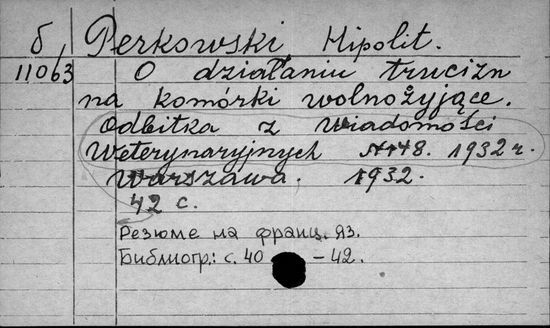 б, Perkowski, Hipolit.
11063 O działaniu trucizn
na komórki wolnożyjące.
Odbitka z Wiadomości
Weterynaryjnych № 148. 1932 r.
Warszawa. 1932.
42 с.
Резюме на франц. яз.
Библиогр.: с. 40 – 42.